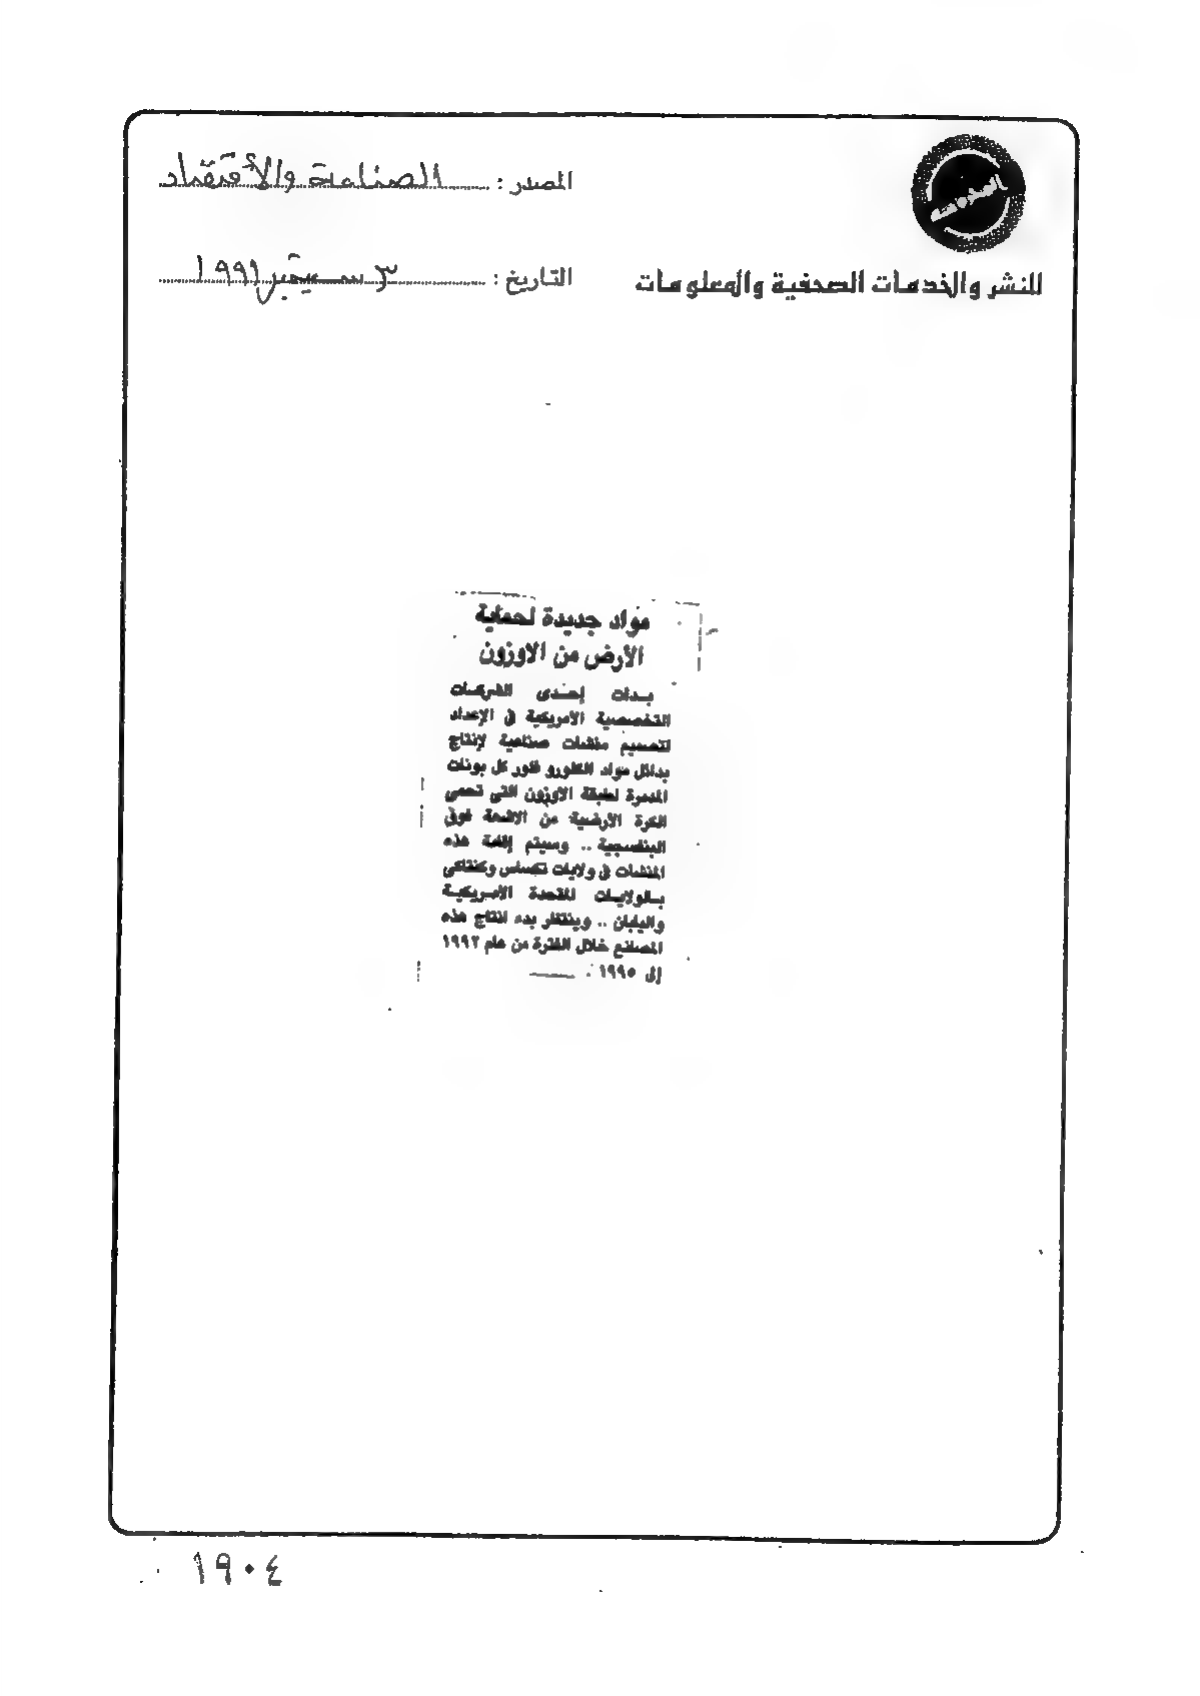 المصدر : الصناعة والأقتصاد
للنشر والخدمات الصحفية والمعلومات
التاريخ : ٣ سبتمبر ١٩٩١
مواد جديدة لحماية
الأرض من الاوزون
بدات إحدى الشركات
التخصصية الأمريكية في الإعداد
لتصميم منشات صناعية لإنتاج
بدائل مواد الكلورو فلور كل بونات
المدمرة لطبقة الاوزون التى تحمى
الكرة الأرضية من الاشعة فوق
البنفسجية .. وسيتم إقامة هذه
المنشات في ولايات تكساس وكنتاكى
بالولايات المتحدة الأمريكية
واليابان .. وينتظر بدء انتاج هذه
المصانع خلال الفترة من عام ١٩٩٢
إلى ١٩٩٥ .
١٩٠٤